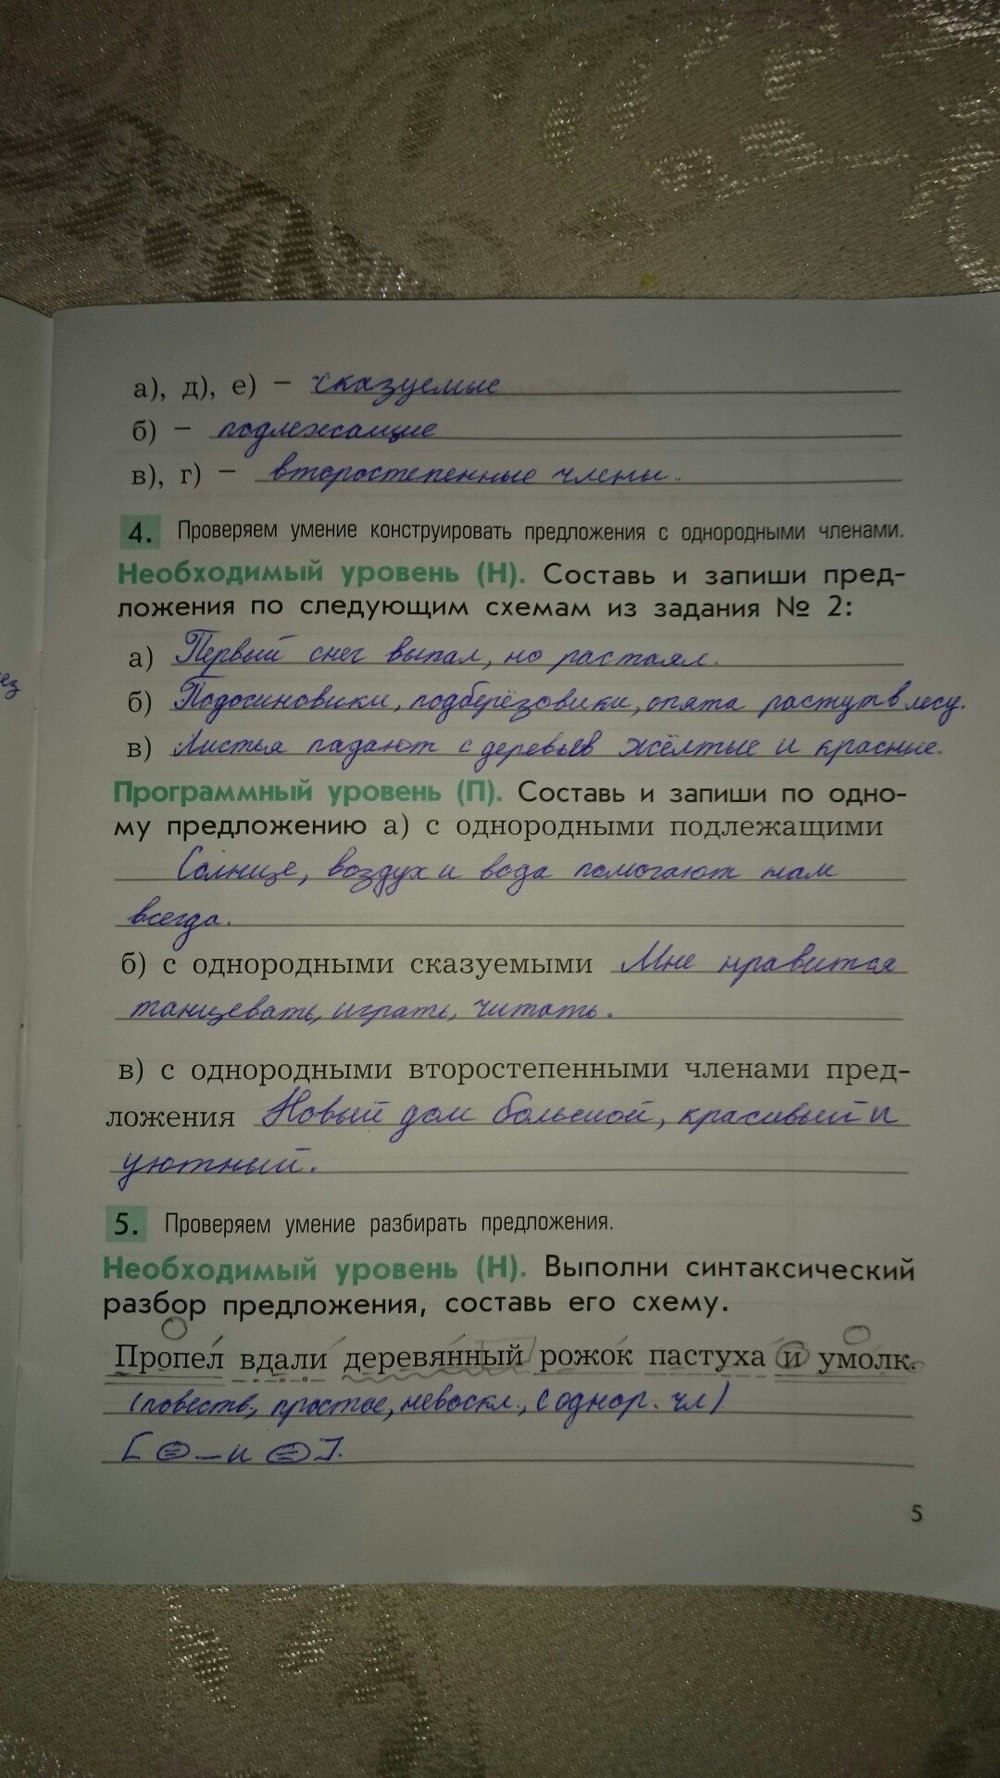 а), д), е) – сказуемые
б) – подлежащие
в), г) – второстепенные члены.
4. Проверяем умение конструировать предложения с однородными членами.
Необходимый уровень (Н). Составь и запиши пред-
ложения по следующим схемам из задания № 2:
а) Первый снег выпал, но растаял.
ез
б) Подосиновики, подберёзовики, опята растут в лесу.
в) Листья падают с деревьев жёлтые и красные.
Программный уровень (П). Составь и запиши по одно-
му предложению а) с однородными подлежащими
Солнце, воздух и вода помогают нам
всегда.
б) с однородными сказуемыми Мне нравится
танцевать, играть, читать.
в) с однородными второстепенными членами пред-
ложения Новый дом большой, красивый и
уютный.
5. Проверяем умение разбирать предложения.
Необходимый уровень (Н). Выполни синтаксический
разбор предложения, составь его схему.
Пропел вдали деревянный рожок пастуха и умолк.
(повеств., простое, невоскл., с однор. чл)
[ = – и = ].
5